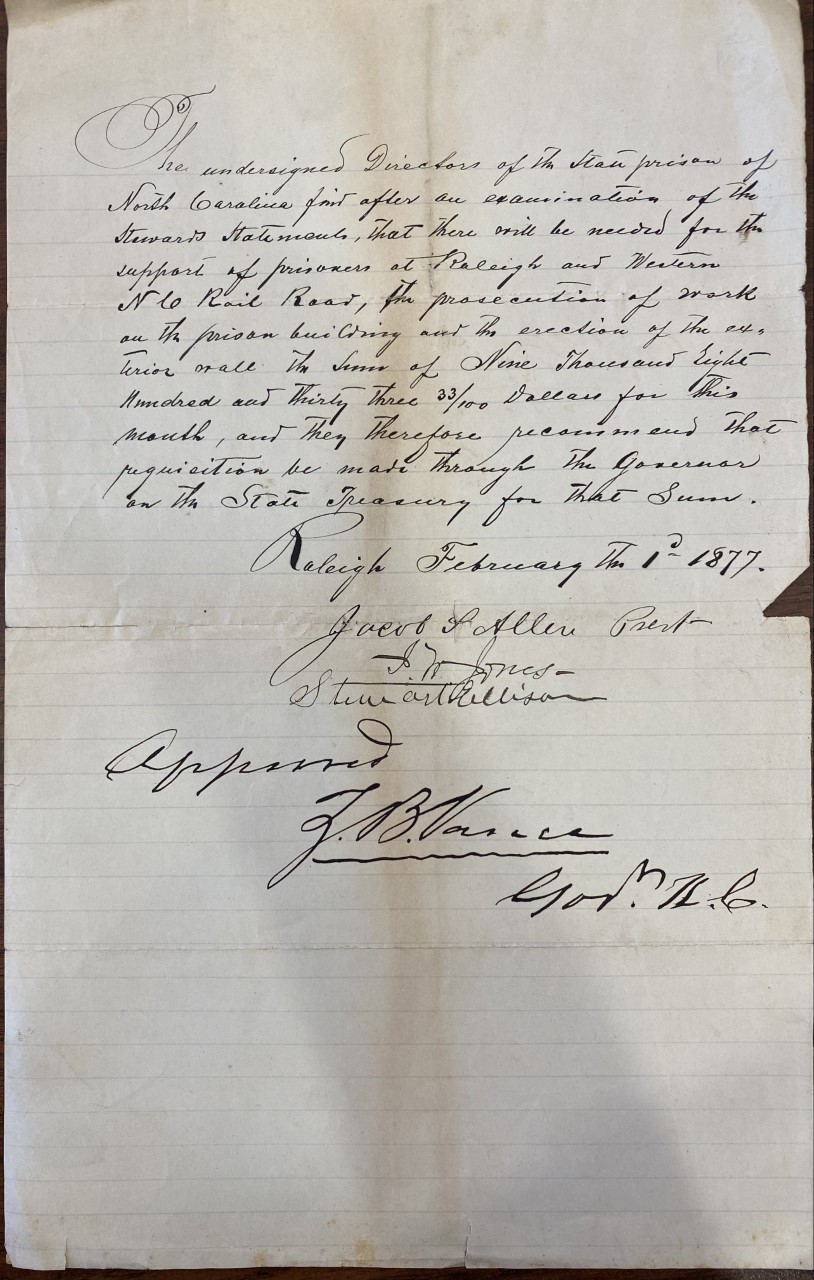 The undersigned Directors of the State prison of
North Carolina find after an examination of the
Stewards Statements, that there will be needed for the
support of prisoners at Raleigh and Western
N C Rail Road, the prosecution of work
on the prison building and the erection of the ex=
terior wall the Sum of Nine Thousand Eight
Hundred and thirty three 33/100 Dollars for this
month, and they therefore recommend that
requisition be made through the Governor
on the State Treasury for that Sum.
Raleigh February the 1d 1877.
Jacob S Allen Prest
J. W Jones
Stewart Ellison
Approved
Z. B. Vance
Govr. N. C.